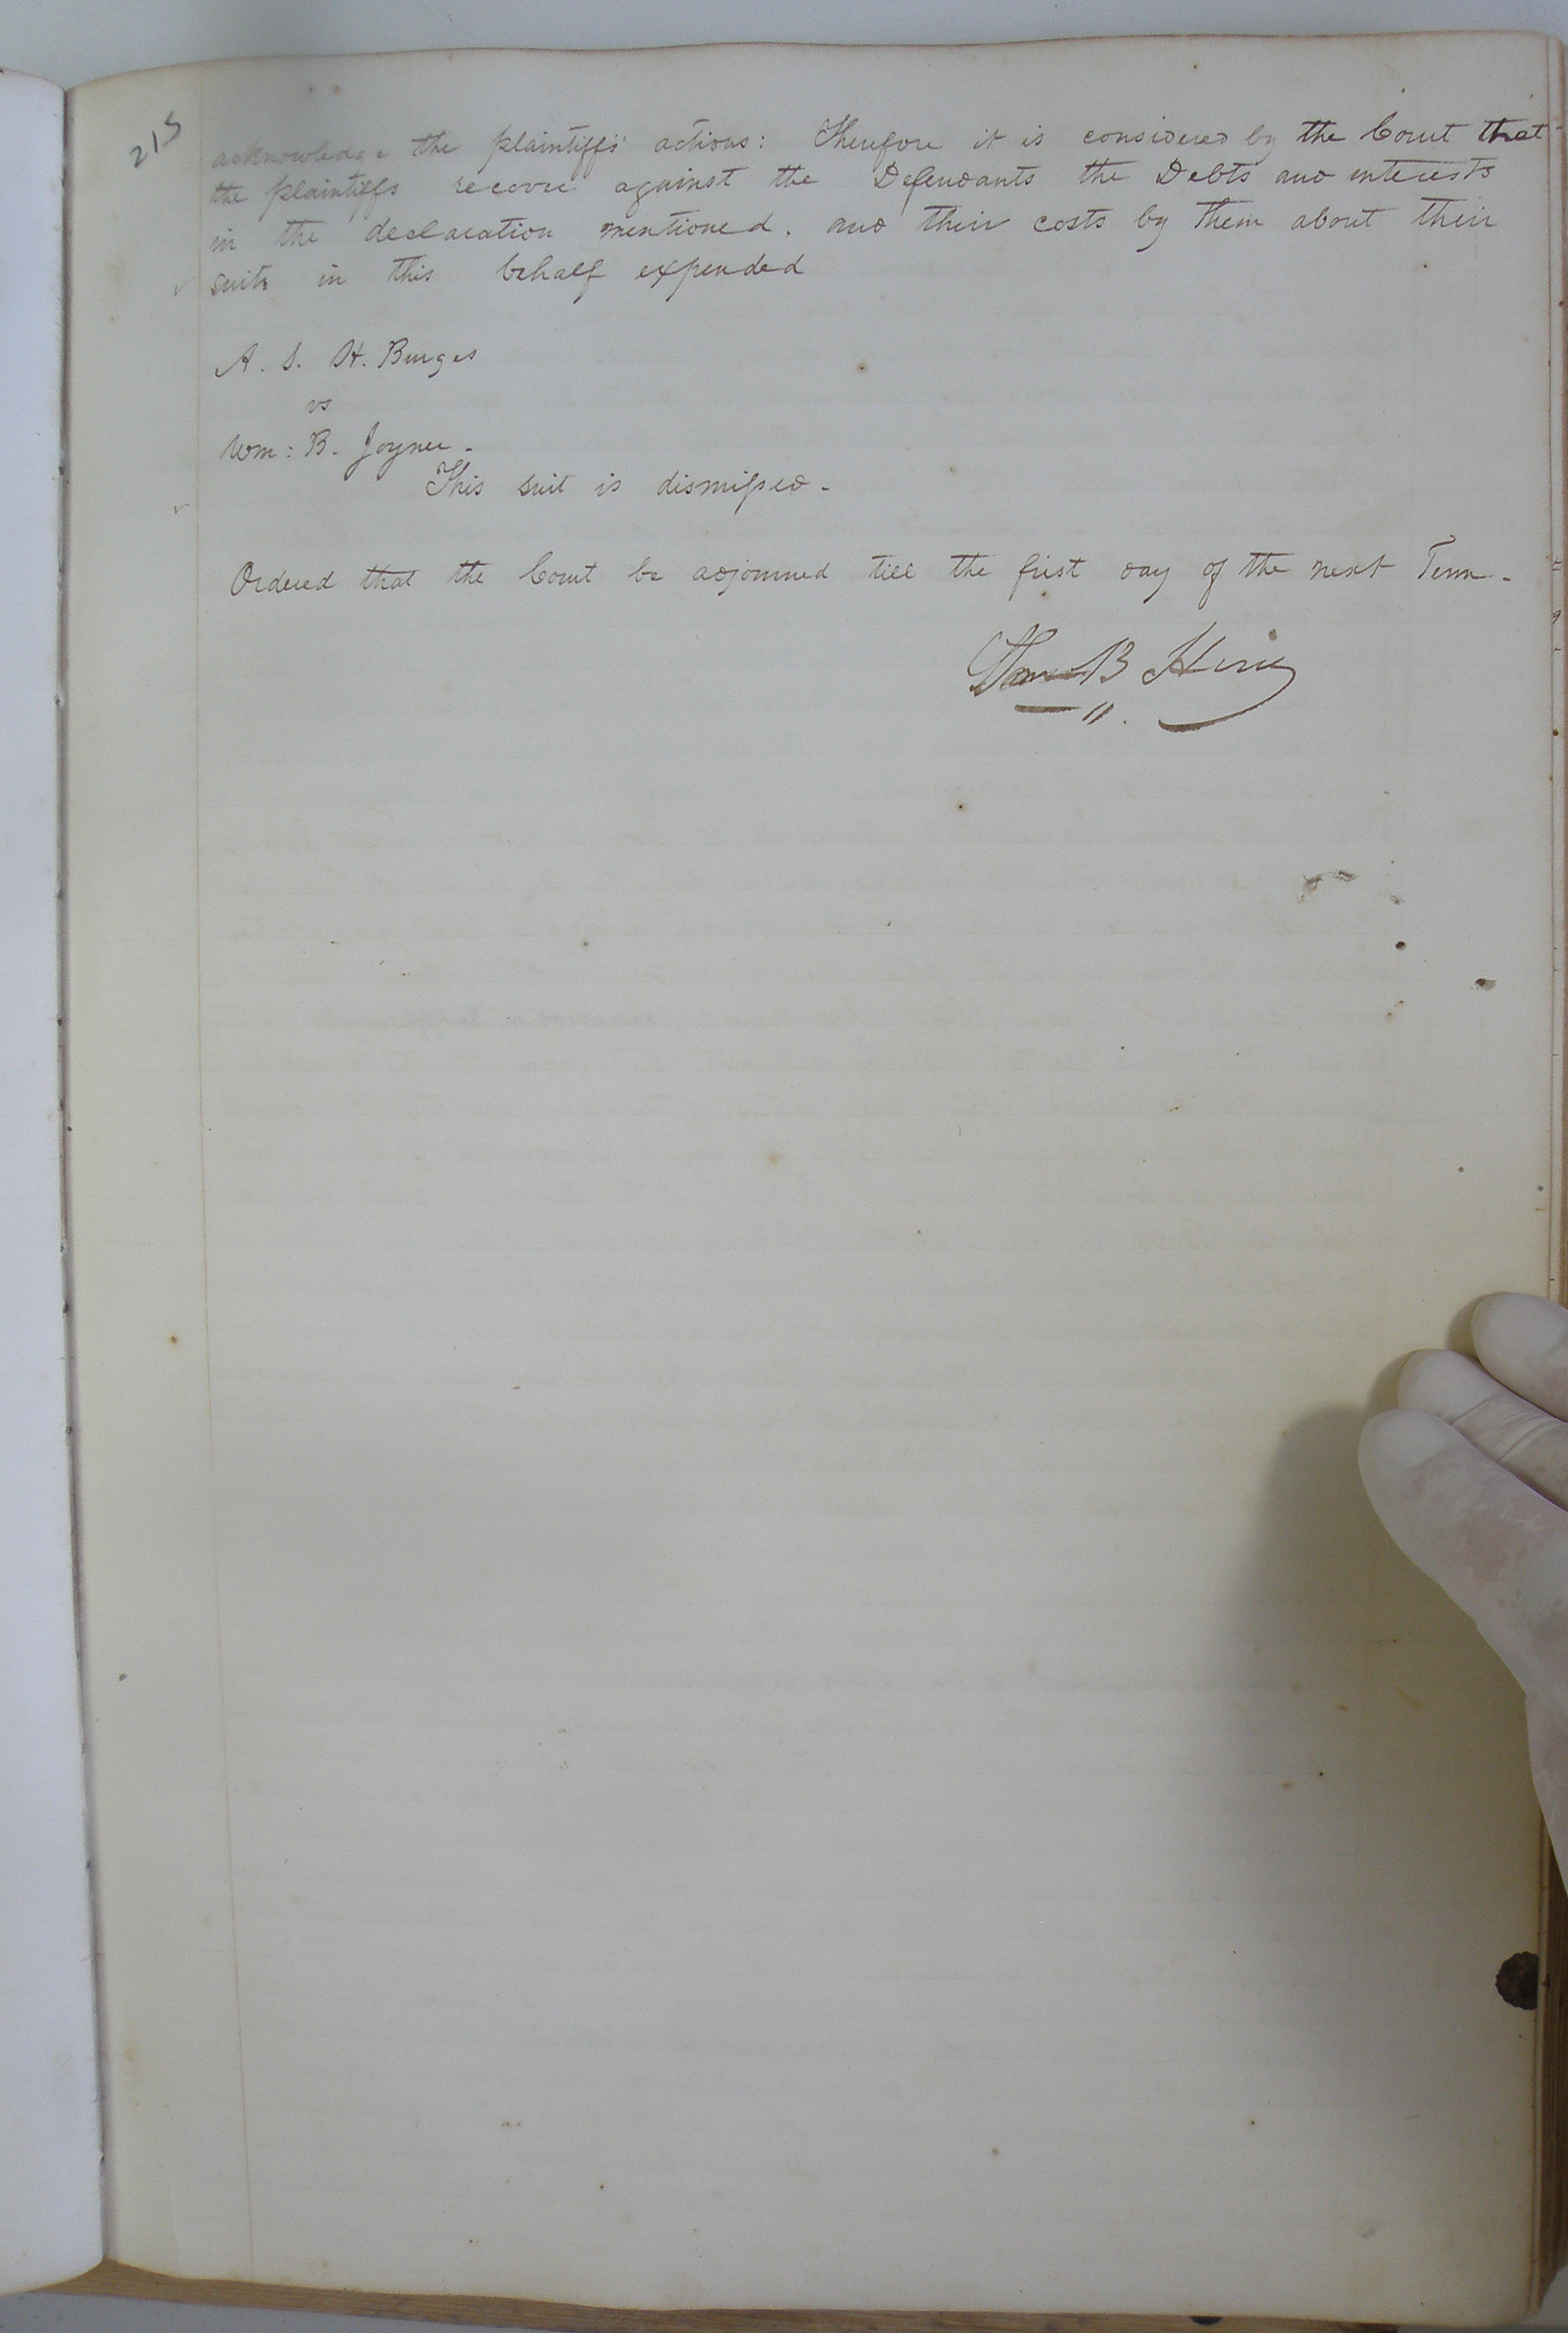 215
acknowledge the plaintiffs' actions: Therefore it is considered by the Court that
the plaintiffs recover against the Defendants the Debts and interests
in the declaration mentioned, and their costs by them about their
suits in this behalf expended
A. S. H. Burges
vs
Wm: B. Joyner -
This suit is dismissed -
Ordered that the Court be adjourned till the first day of the next Term -
B